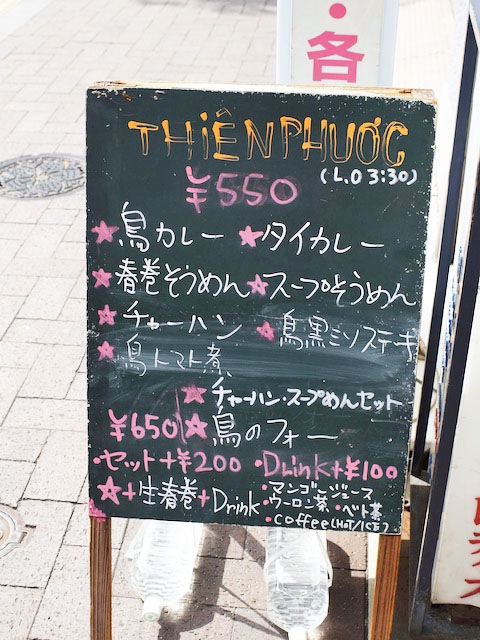 ・各
THIÊN PHƯỚC
¥550 (L.O 3:30)
★鳥カレー ★タイカレー
★春巻そうめん ★スープそうめん
★チャーハン ★鳥黒ミソステーキ
★鳥トマト煮
★チャーハン・スープめんセット
¥650 ★鳥のフォー
・セット+¥200 ・Drink+¥100
★+生春巻+Drink
・マンゴージュース
・ウーロン茶 ・ベト茶
・coffee(HOT/ICE)